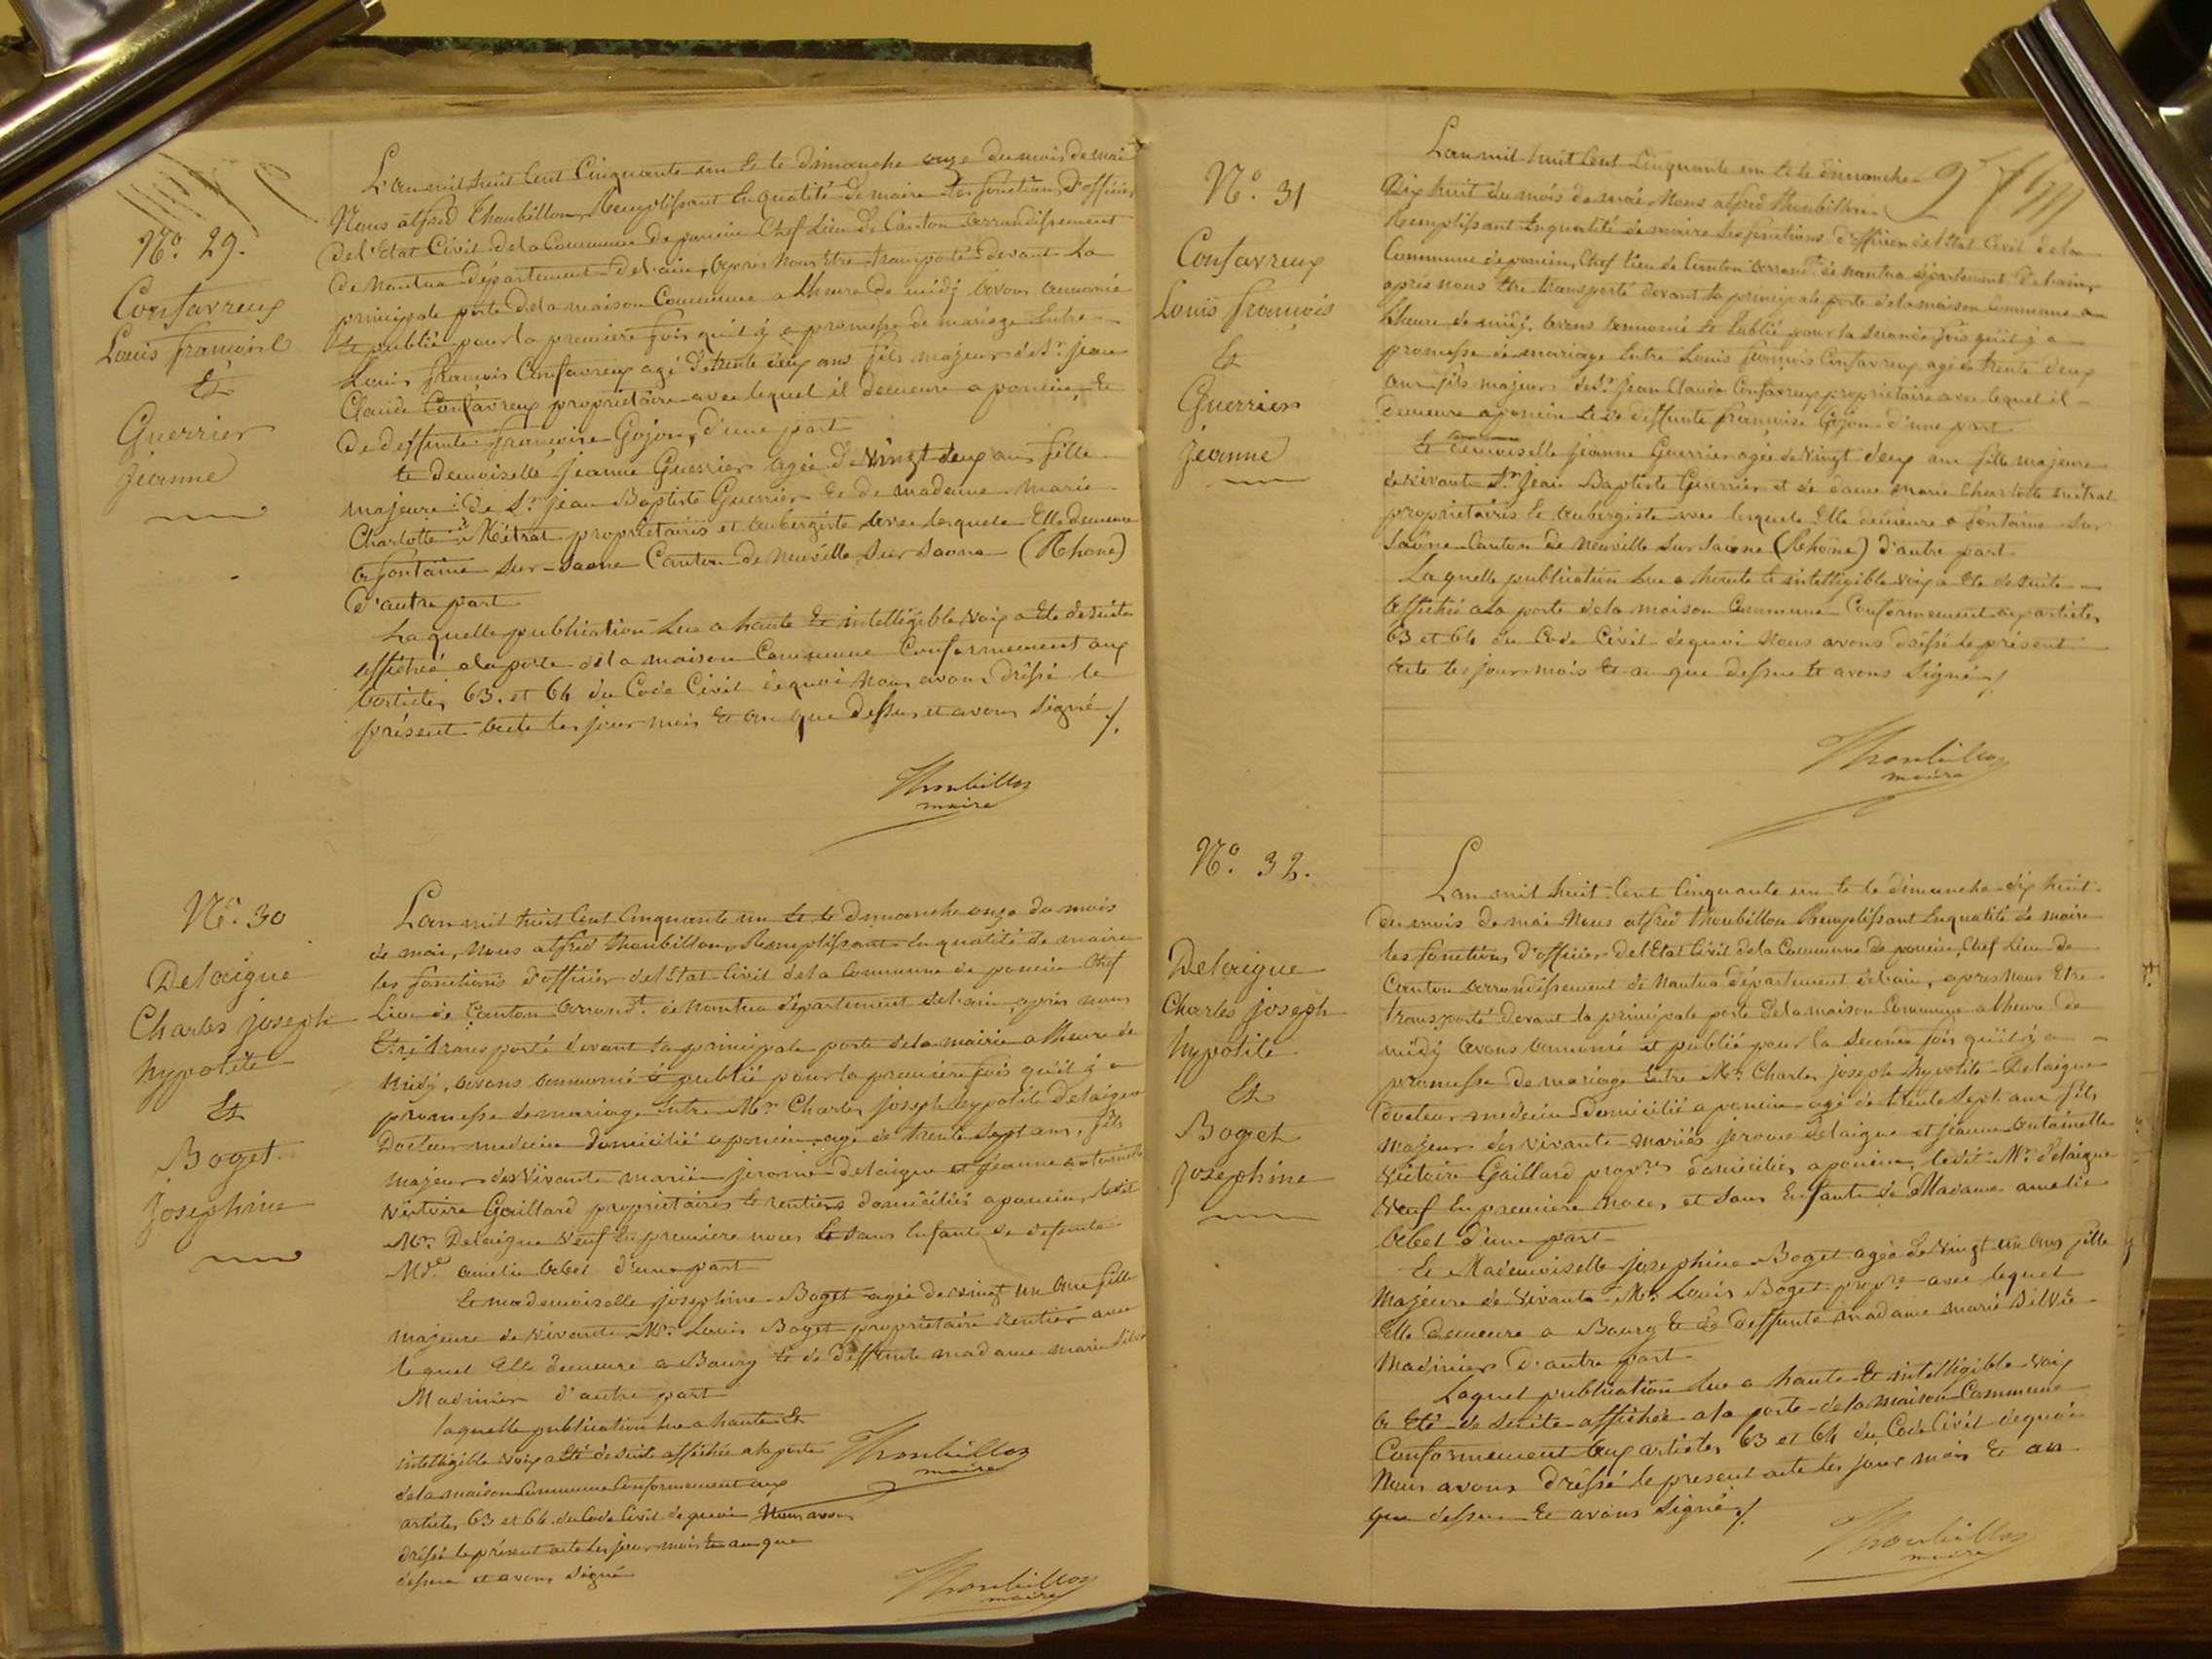 N.° 29.
Confavreux
Louis françois
Et
Guerrier
Jeanne
L'an mil huit Cent Cinquante un Et le dimanche onze du mois de mai
Nous alfred Thoubillon, Remplissant En qualité de maire les fonctions d'officier
de l'Etat Civil de la Commune de poncin Chef Lieu de Canton arrondissement
de Nantua département de l'ain, après Nous Etre transporté devant La
principale porte de la maison Commune a L'heure de midj avons annoncé
Et publié pour la première fois qu'il ÿ a promesse de mariage Entre
Louis françois Confavreux agé de trente deux ans fils majeur de Sr. jean
Claude Confavreux propriétaire avec lequel il demeure a poncin, Et
De deffunte françoise Gojon, d'une part
Et Demoiselle Jeanne Guerrier agée de Vingt deux ans fille
majeure de Sr. jean Baptiste Guerrier Et de madame marie
Charlotte Métrat propriétaires et aubergiste avec lesquels Elle demeure
a fontaine sur-Saone Canton de Neuville sur Saone (Rhone)
d'autre part
Laquelle publication Lue a haute Et intelligible voix a Eté de suite
affichée a la porte de la maison Commune Conformement aux
articles 63. et 64 du Code Civil de quoi Nous avons dréssé le
présent acte les jour mois Et an que dessus et avons signé ./.
Thoubillon
maire
N.° 30
Delaigue
Charles joseph
hypolite
Et
Boget
Josephine
L'an mil huit Cent Cinquante un Et le Dimanche onze du mois
de mai, Nous alfred thoubillon, Remplissant En qualité de maire
les fonctions d'officier de l'Etat Civil de la Commune de poncin Chef
Lieu de Canton arrond.t de Nantua département de l'ain, après nous
Etre transporté devant la principale porte de la mairie a l'heure de
Midj, avons annoncé et publié pour la première fois qu'il ÿ a
promesse de mariage Entre Mr. Charles joseph hypolite Delaigue
Docteur medecin domicilié a poncin agé de trente sept ans, fils
majeur des Vivants mariés jerome delaigue et jeanne antoinette
Victoire Gaillard propriétaires Et rentiers domiciliés a poncin, ledit
Mr. Delaigue Veuf En premiere noces Et sans Enfants de defunte
Md.e amelie abel d'une part
Et mademoiselle josephine Boget agée de vingt un ans fille
majeure de vivants Mr. Louis Boget propriétaire rentier avec
lequel Elle demeure a Bourg Et de deffunte madame marie Silvie
Madinier d'autre part
laquelle publication lue a haute Et
intelligible voix a Eté de suite affichée a la porte
de la maison Commune Conformement aux
articles 63 et 64 du Code Civil de quoi Nous avons
dréssé le présent acte les jour mois Et an que
dessus et avons signé
Thoubillon
maire
Thoubillon
maire
N.° 31
Confavreux
Louis françois
Et
Guerrier
Jeanne
L'an mil huit Cent Cinquante un Et le dimanche
Dix huit du mois de mai Nous alfred thoubillon
Remplissant En qualité de maire les fonctions d'officier de l'Etat Civil de la
Commune de poncin, Chef Lieu de Canton arrond.t de nantua département de l'ain,
après nous Etre transporté devant la principale porte de la maison Commune a
L'heure de midj, avons annoncé Et Publié pour la seconde fois qu'il ÿ a
promesse de mariage Entre Louis françois Confavreux agé de trente deux
ans fils majeur de Sr. Jean Claude Confavreux propriétaire avec lequel il
Demeure a poncin Et de deffunte françoise Gojon d'une part
Et demoiselle Jeanne Guerrier agée de Vingt deux ans fille majeure
de vivants Sr. Jean Baptiste Guerrier et de dame marie Charlotte métrat
propriétaires Et aubergiste avec lesquels Elle demeure a fontaine sur
Saône Canton de Neuville sur Saône (Rhône) d'autre part.
Laquelle publication Lue a haute Et intelligible voix a Eté de suite
affichée a la porte de la maison Commune Conformement aux articles
63 et 64 du Code Civil de quoi Nous avons dréssé le présent
acte les jour mois Et an que dessus Et avons signé ./.
Thoubillon
maire
N.° 32.
Delaigue
Charles joseph
hypolite
Et
Boget
Josephine
L'an mil huit Cent Cinquante un Et le dimanche dix huit
du mois de mai Nous alfred thoubillon Remplissant En qualité de maire
les fonctions d'officier de l'Etat Civil de la Commune de poncin, Chef Lieu de
Canton arrondissement de Nantua département de l'ain, après Nous Etre
transporté devant la principale porte de la maison Commune a l'heure de
midj avons annoncé et publié pour la seconde fois qu'il ÿ a
promesse de mariage Entre Mr. Charles joseph hypolite Delaigue
Docteur medecin Domicilié a poncin agé de trente sept ans fils
majeur des vivants mariés jerome delaigue et jeanne antoinette
Victoire Gaillard prop.res domiciliés a poncin, ledit Mr. delaigue
Veuf En premiere noces, et sans Enfants de Madame amelie
abel d'une part
Et Mademoiselle josephine Boget agée de vingt un ans fille
Majeure de vivants Mr. Louis Boget prop.re avec lequel
Elle demeure a Bourg Et de deffunte madame marie Silvie
Madinier d'autre part
Laquel publication lue a haute Et intelligible voix
a Eté de suite affichée a la porte de la maison Commune
Conformement aux articles 63 et 64 du Code Civil de quoi
Nous avons dréssé le present acte les jour mois Et an
que dessus Et avons signé ./.
Thoubillon
maire